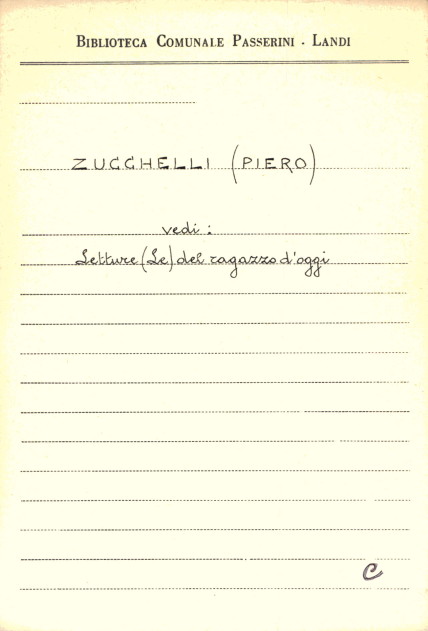 BIBLIOTECA COMUNALE PASSERINI - LANDI
ZUCCHELLI (PIERO)
vedi :
Letture (Le) del ragazzo d'oggi
C